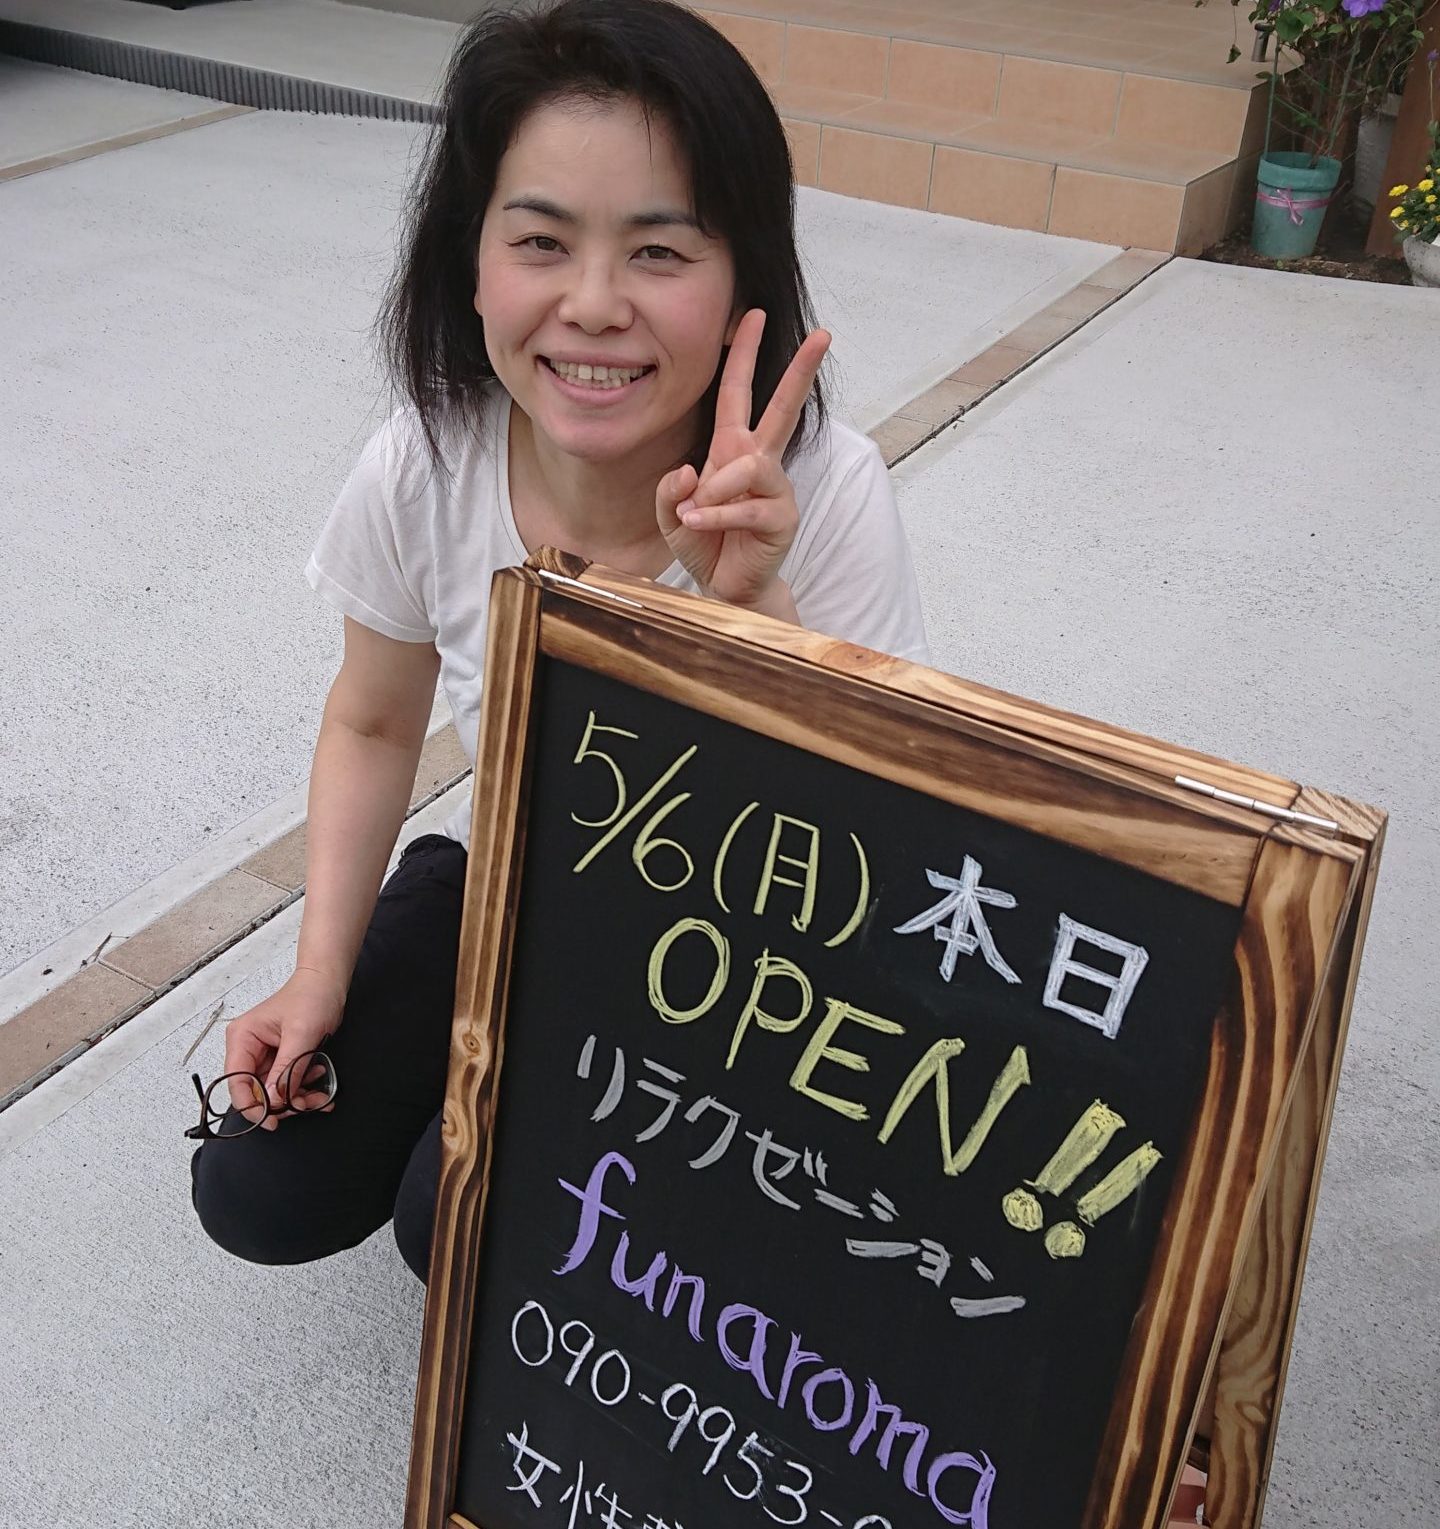 5/6(月) 本日
OPEN!!
リラクゼーション
funaroma
090-9953-
女性